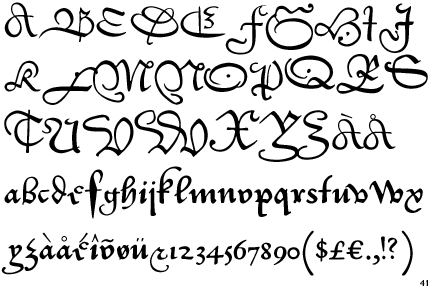 ABCDEFGHIJ
KLMNOPQRS
TUVWXYZÀÅ
abcdefghijklmnopqrstuvwx
yzàåéîõøü&1234567890($£€.,!?)
41